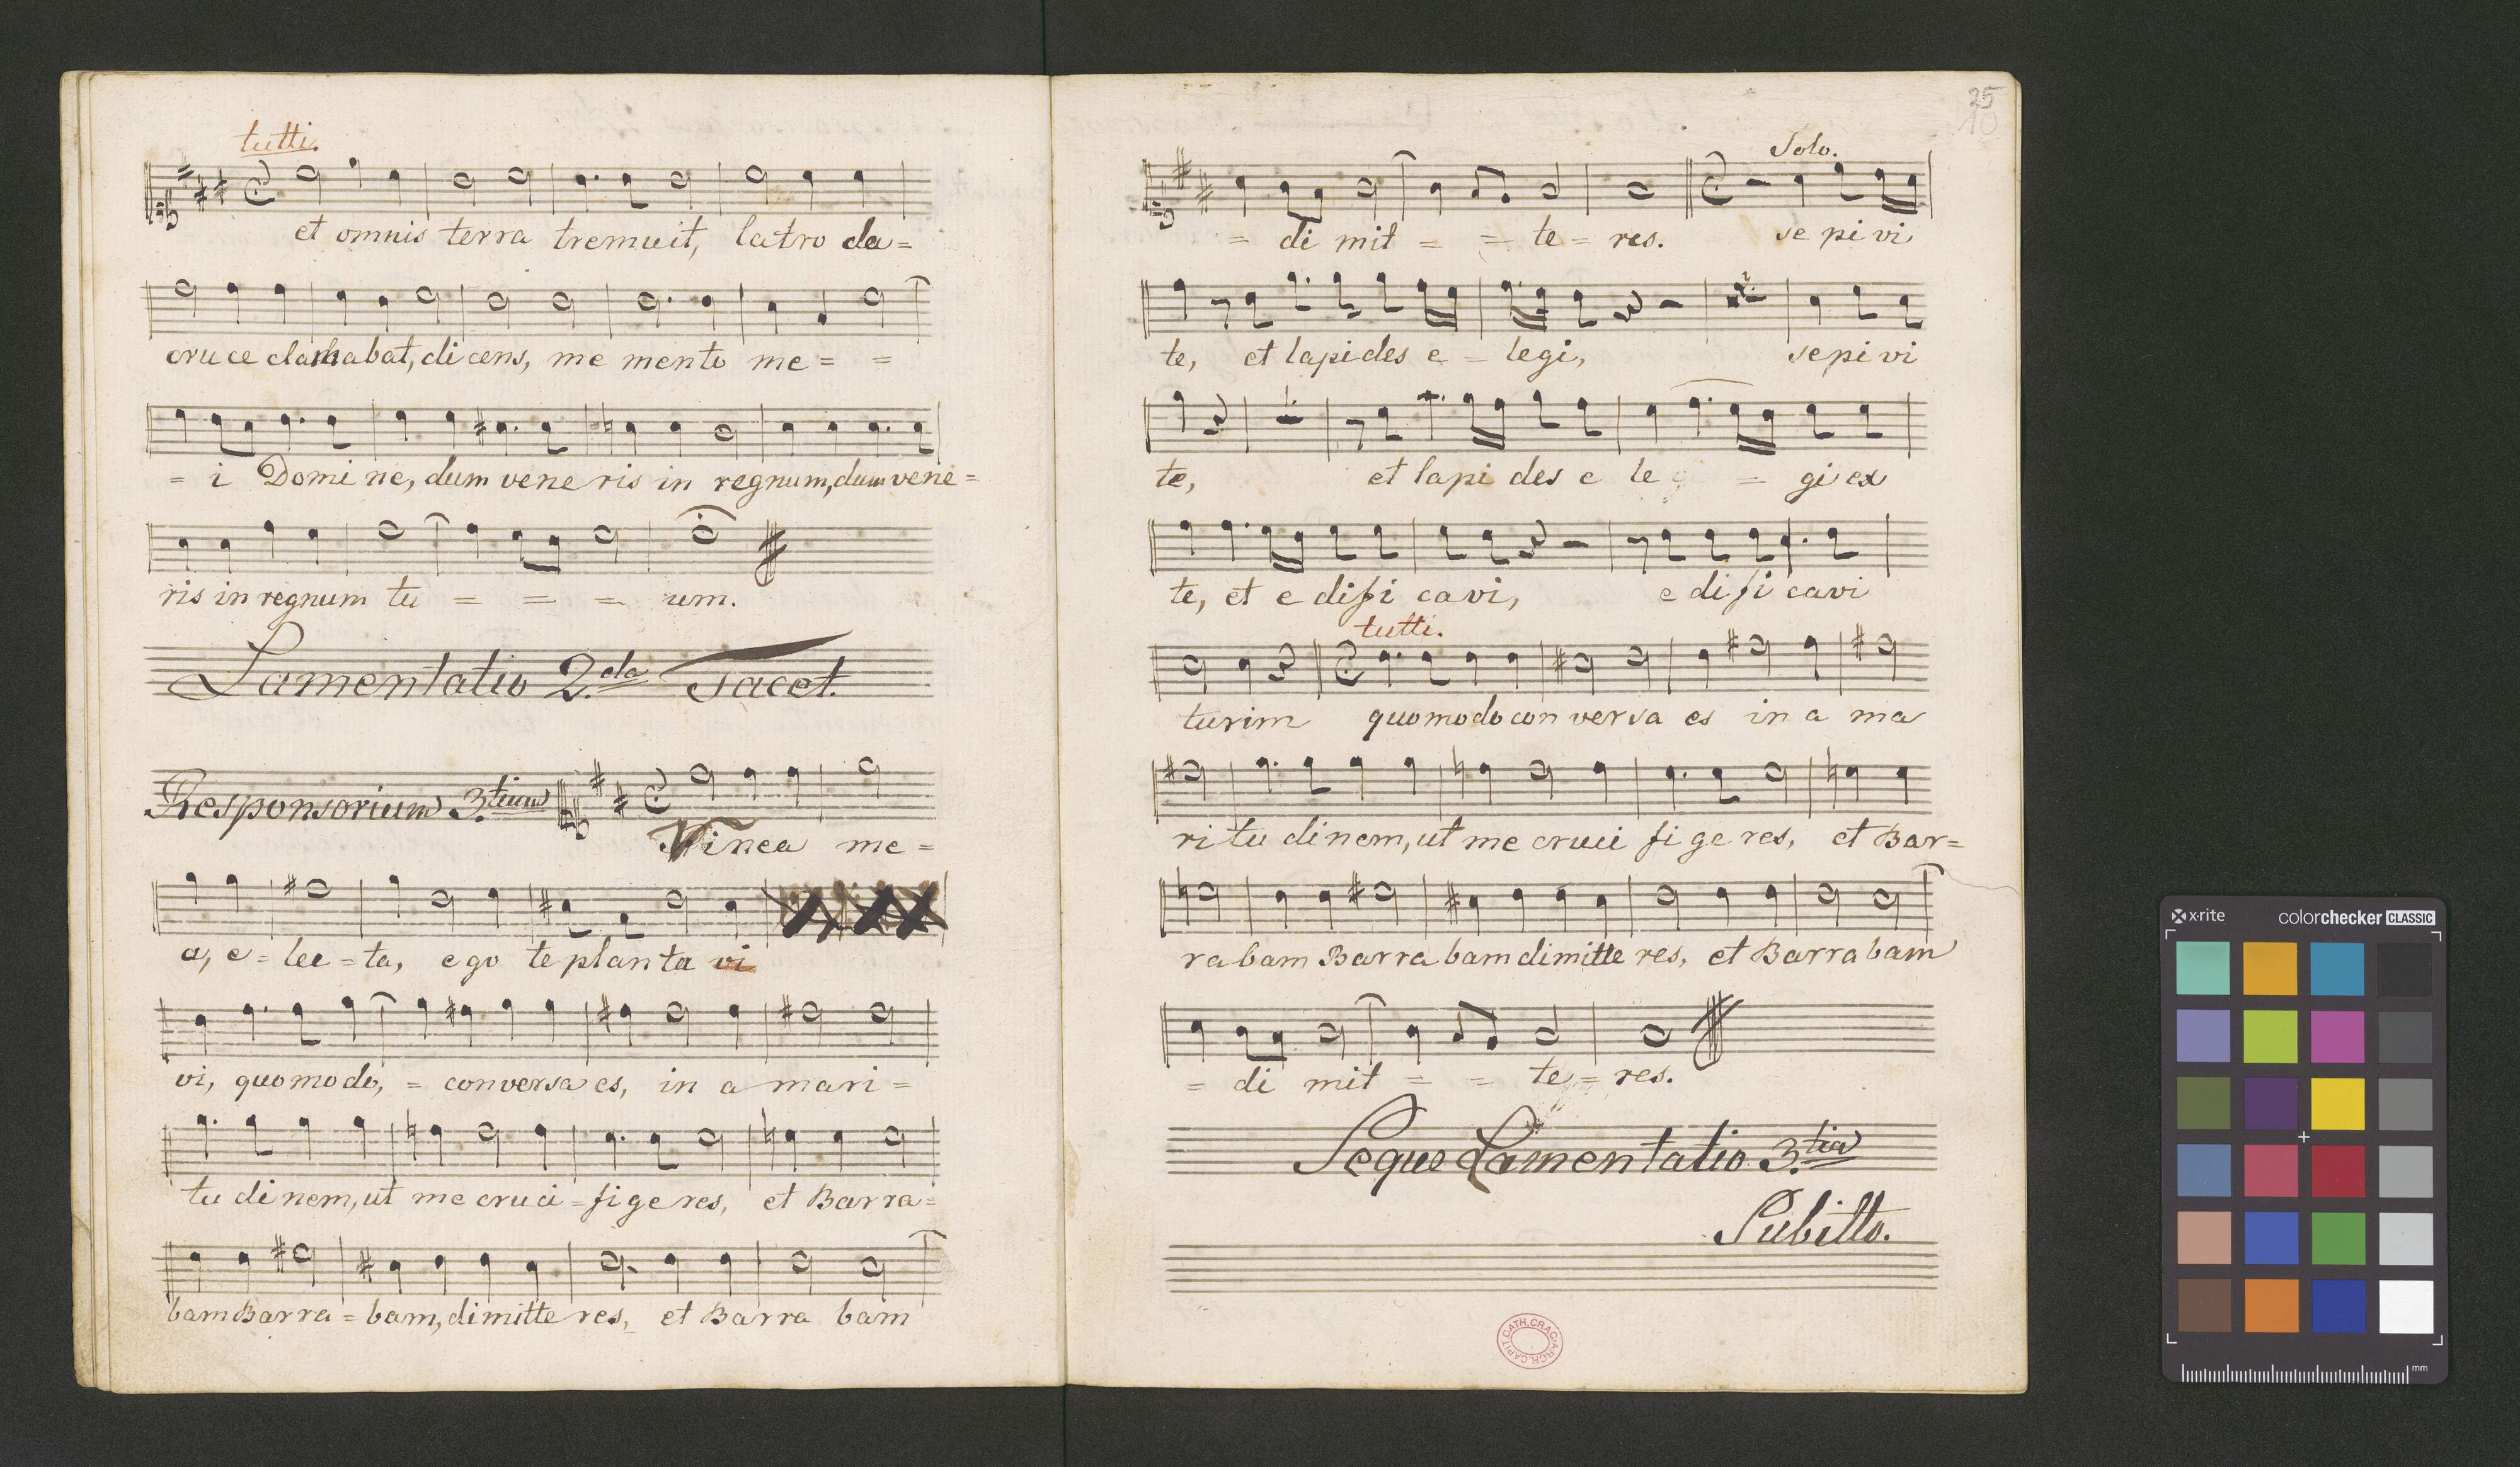 tutti.
et omnis terra tremuit, latro da=
cruce clamabat, di cens, me mento me = =
= i Domi ne, dum vene ris in regnum, dum vene=
ris in regnum tu = = = um.
Lamentatio 2.da Tacet.
Responsorium 3.tium
Vinea me=
a, e=lec=ta, ego te plan ta vi
vi, quomodo, = conversa es, in a mari=
tu di nem, ut me cruci=fi ge res, et Barra=
bam Barra=bam, dimitte res, et Barra bam
25
10
Solo.
= di mit = = te = res. se pi vi
te, et lapides e = legi, sepi vi
te, et lapi des e le = gi ex
te, et e difi cavi, e di fi cavi
tutti.
turim quomodo con versa es in a ma
ri tu dinem, ut me cruci fi ge res, et Bar=
ra bam Barra bam dimitte res, et Barra bam
= di mit = = te = res.
Seque Lamentatio 3.tia
Subitto.
ARCH.CAPIT.CATH.CRAC.
x·rite
colorchecker CLASSIC
mm